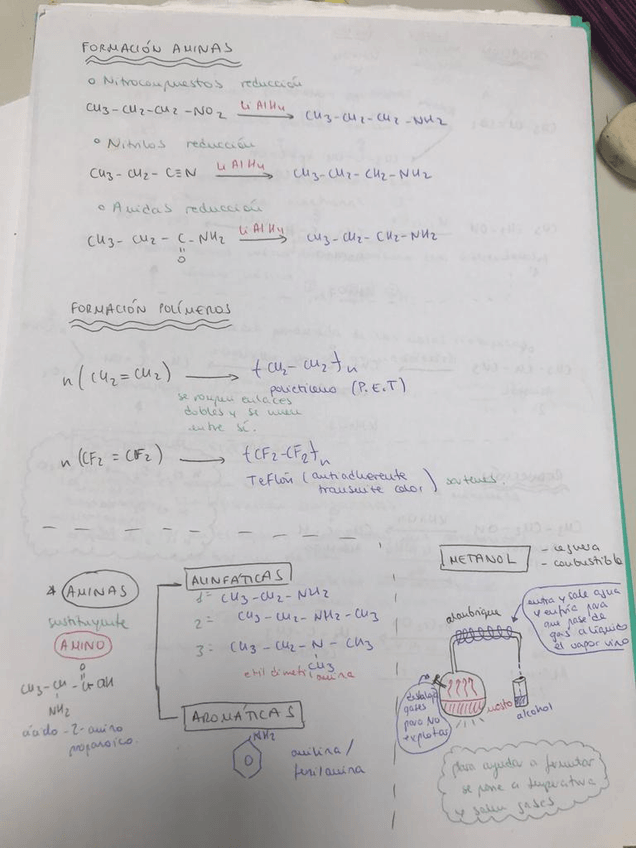 FORMACIÓN AMINAS
o Nitrocompuestos reducción
CH3-CH2-CH2-NO2 LiAlH4 → CH3-CH2-CH2-NH2
o Nitrilos reducción
CH3-CH2-C≡N LiAlH4 → CH3-CH2-CH2-NH2
o Amidas reducción
CH3-CH2-C-NH2 LiAlH4 → CH3-CH2-CH2-NH2
O
FORMACIÓN POLÍMEROS
n (CH2=CH2) → {CH2-CH2}n
polietileno (P.E.T)
se rompen enlaces
dobles y se unen
entre sí.
n (CF2=CF2) → {CF2-CF2}n
Teflón (antiadherente
transmite calor) sartenes.
* AMINAS
sustituyente
AMINO
O
CH3-CH-C-OH
NH2
ácido-2-amino
propanoico.
ALINFÁTICAS
1= CH3-CH2-NH2
2= CH3-CH2-NH-CH3
3= CH3-CH2-N-CH3
CH3
etil dimetil amina
AROMÁTICAS
NH2
anilina/
fenilamina
METANOL
- ceguera
- combustible
alambique
entra y sale agua
y enfría para
que pase de
gas a líquido
el vapor vino
gases
para NO
explotar
mosto
alcohol
para ayudar a fermentar
se pone a temperatura
y salen gases